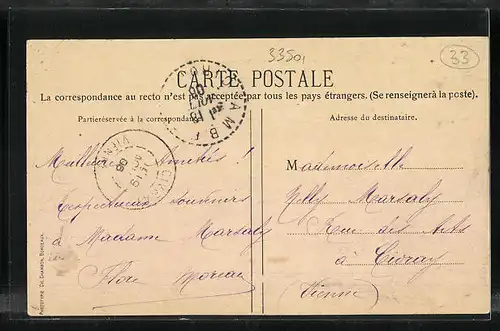 3350,
33
CARTE POSTALE
La correspondance au recto n'est pas acceptée par tous les pays étrangers. (Se renseigner à la poste).
Partie réservée à la correspondance
Adresse du destinataire.
Amitiés !
Respectueux Souvenirs
à Madame Marsaly
Moreau
Mademoiselle
Nelly Marsaly
Rue des Arts
à Civray
(Vienne)